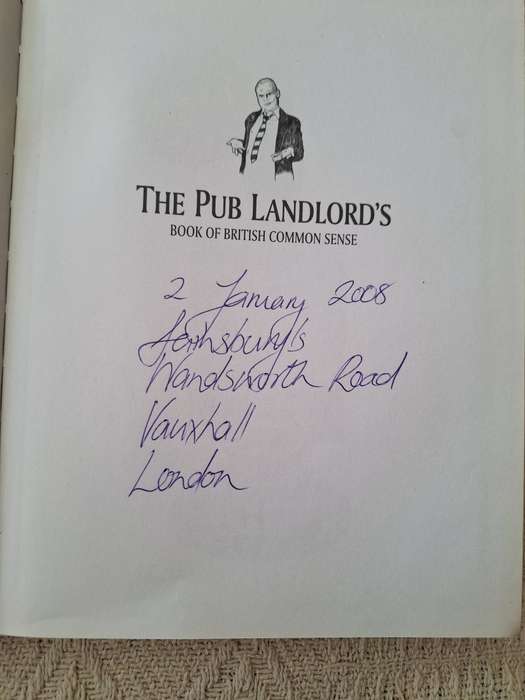 THE PUB LANDLORD'S
BOOK OF BRITISH COMMON SENSE
2 January 2008
Sainsbury's
Wandsworth Road
Vauxhall
London